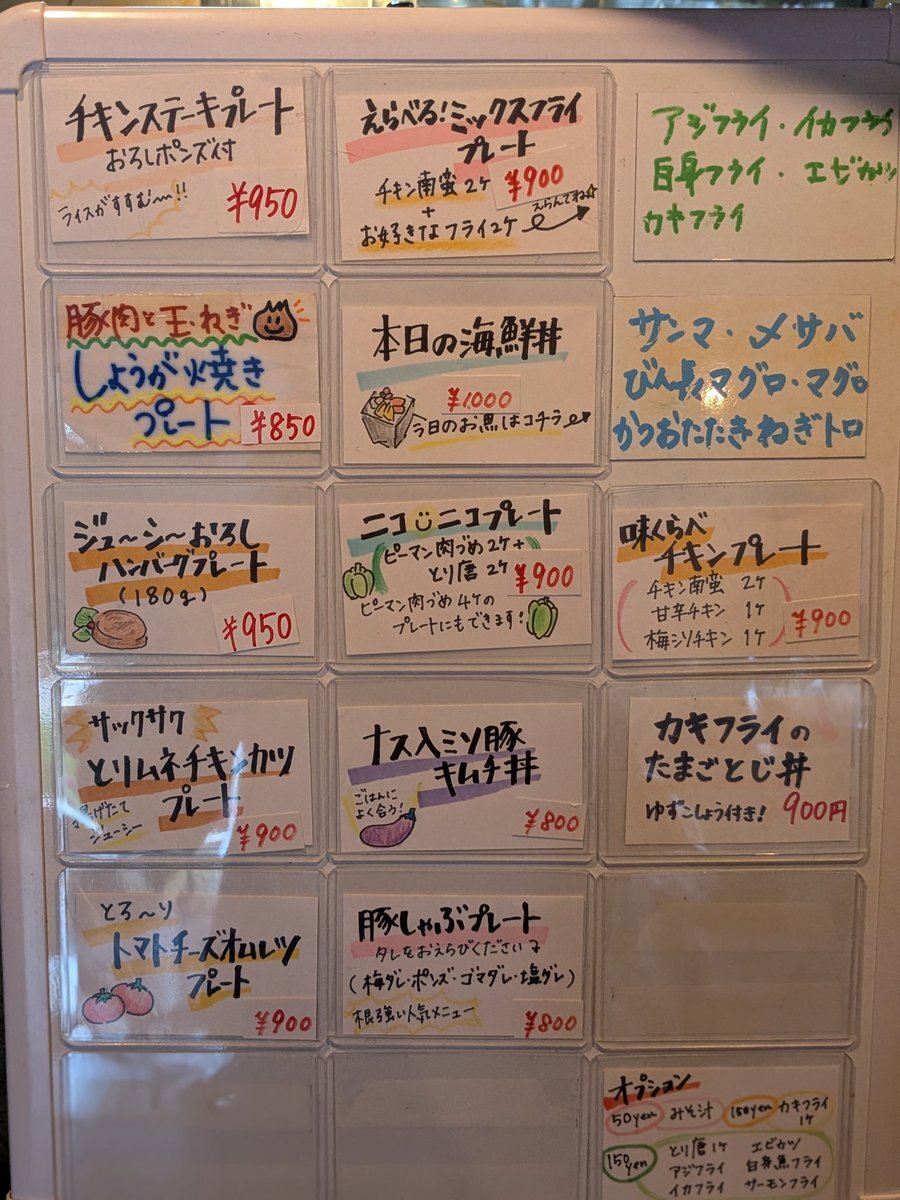 チキンステーキプレート
おろしポンズ付
ライスがすすむ〜!!
¥950
えらべる!ミックスフライ
プレート
チキン南蛮 2ケ
¥900
+
お好きなフライ2ケ
えらんでね☆
アジフライ・イカフライ
白身フライ・エビカツ
カキフライ
豚肉と玉ねぎ
しょうが焼き
プレート
¥850
本日の海鮮丼
¥1,000
今日のお魚はコチラ
サンマ・メサバ
びんちょマグロ・マグロ
かつおたたきねぎトロ
ジュ〜シ〜おろし
ハンバーグプレート
(180g)
¥950
ニコニコプレート
ピーマン肉づめ2ケ+
とり唐2ケ
¥900
ピーマン肉づめ4ケの
プレートにもできます!
味くらべ
チキンプレート
チキン南蛮 2ケ
甘辛チキン 1ケ
梅シソチキン 1ケ
¥900
サックサク
とりムネチキンカツ
プレート
揚げたて
ジューシー
¥900
ナス入ミソ豚
キムチ丼
ごはんに
よく合う!
¥800
カキフライの
たまごとじ丼
ゆずこしょう付き!
900円
とろ〜り
トマトチーズオムレツ
プレート
¥900
豚しゃぶプレート
タレをおえらびください
(梅ダレ・ポンズ・ゴマダレ・塩ダレ)
根強い人気メニュー
¥800
オプション
50yen みそ汁 150yen カキフライ
1ケ
150yen
とり唐1ケ エビカツ
アジフライ 白身魚フライ
イカフライ サーモンフライ